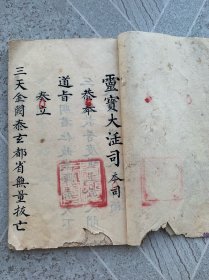 靈寶大法司 本司
恭奉
道旨
奏立
三天金闕泰玄都省無量拔亡